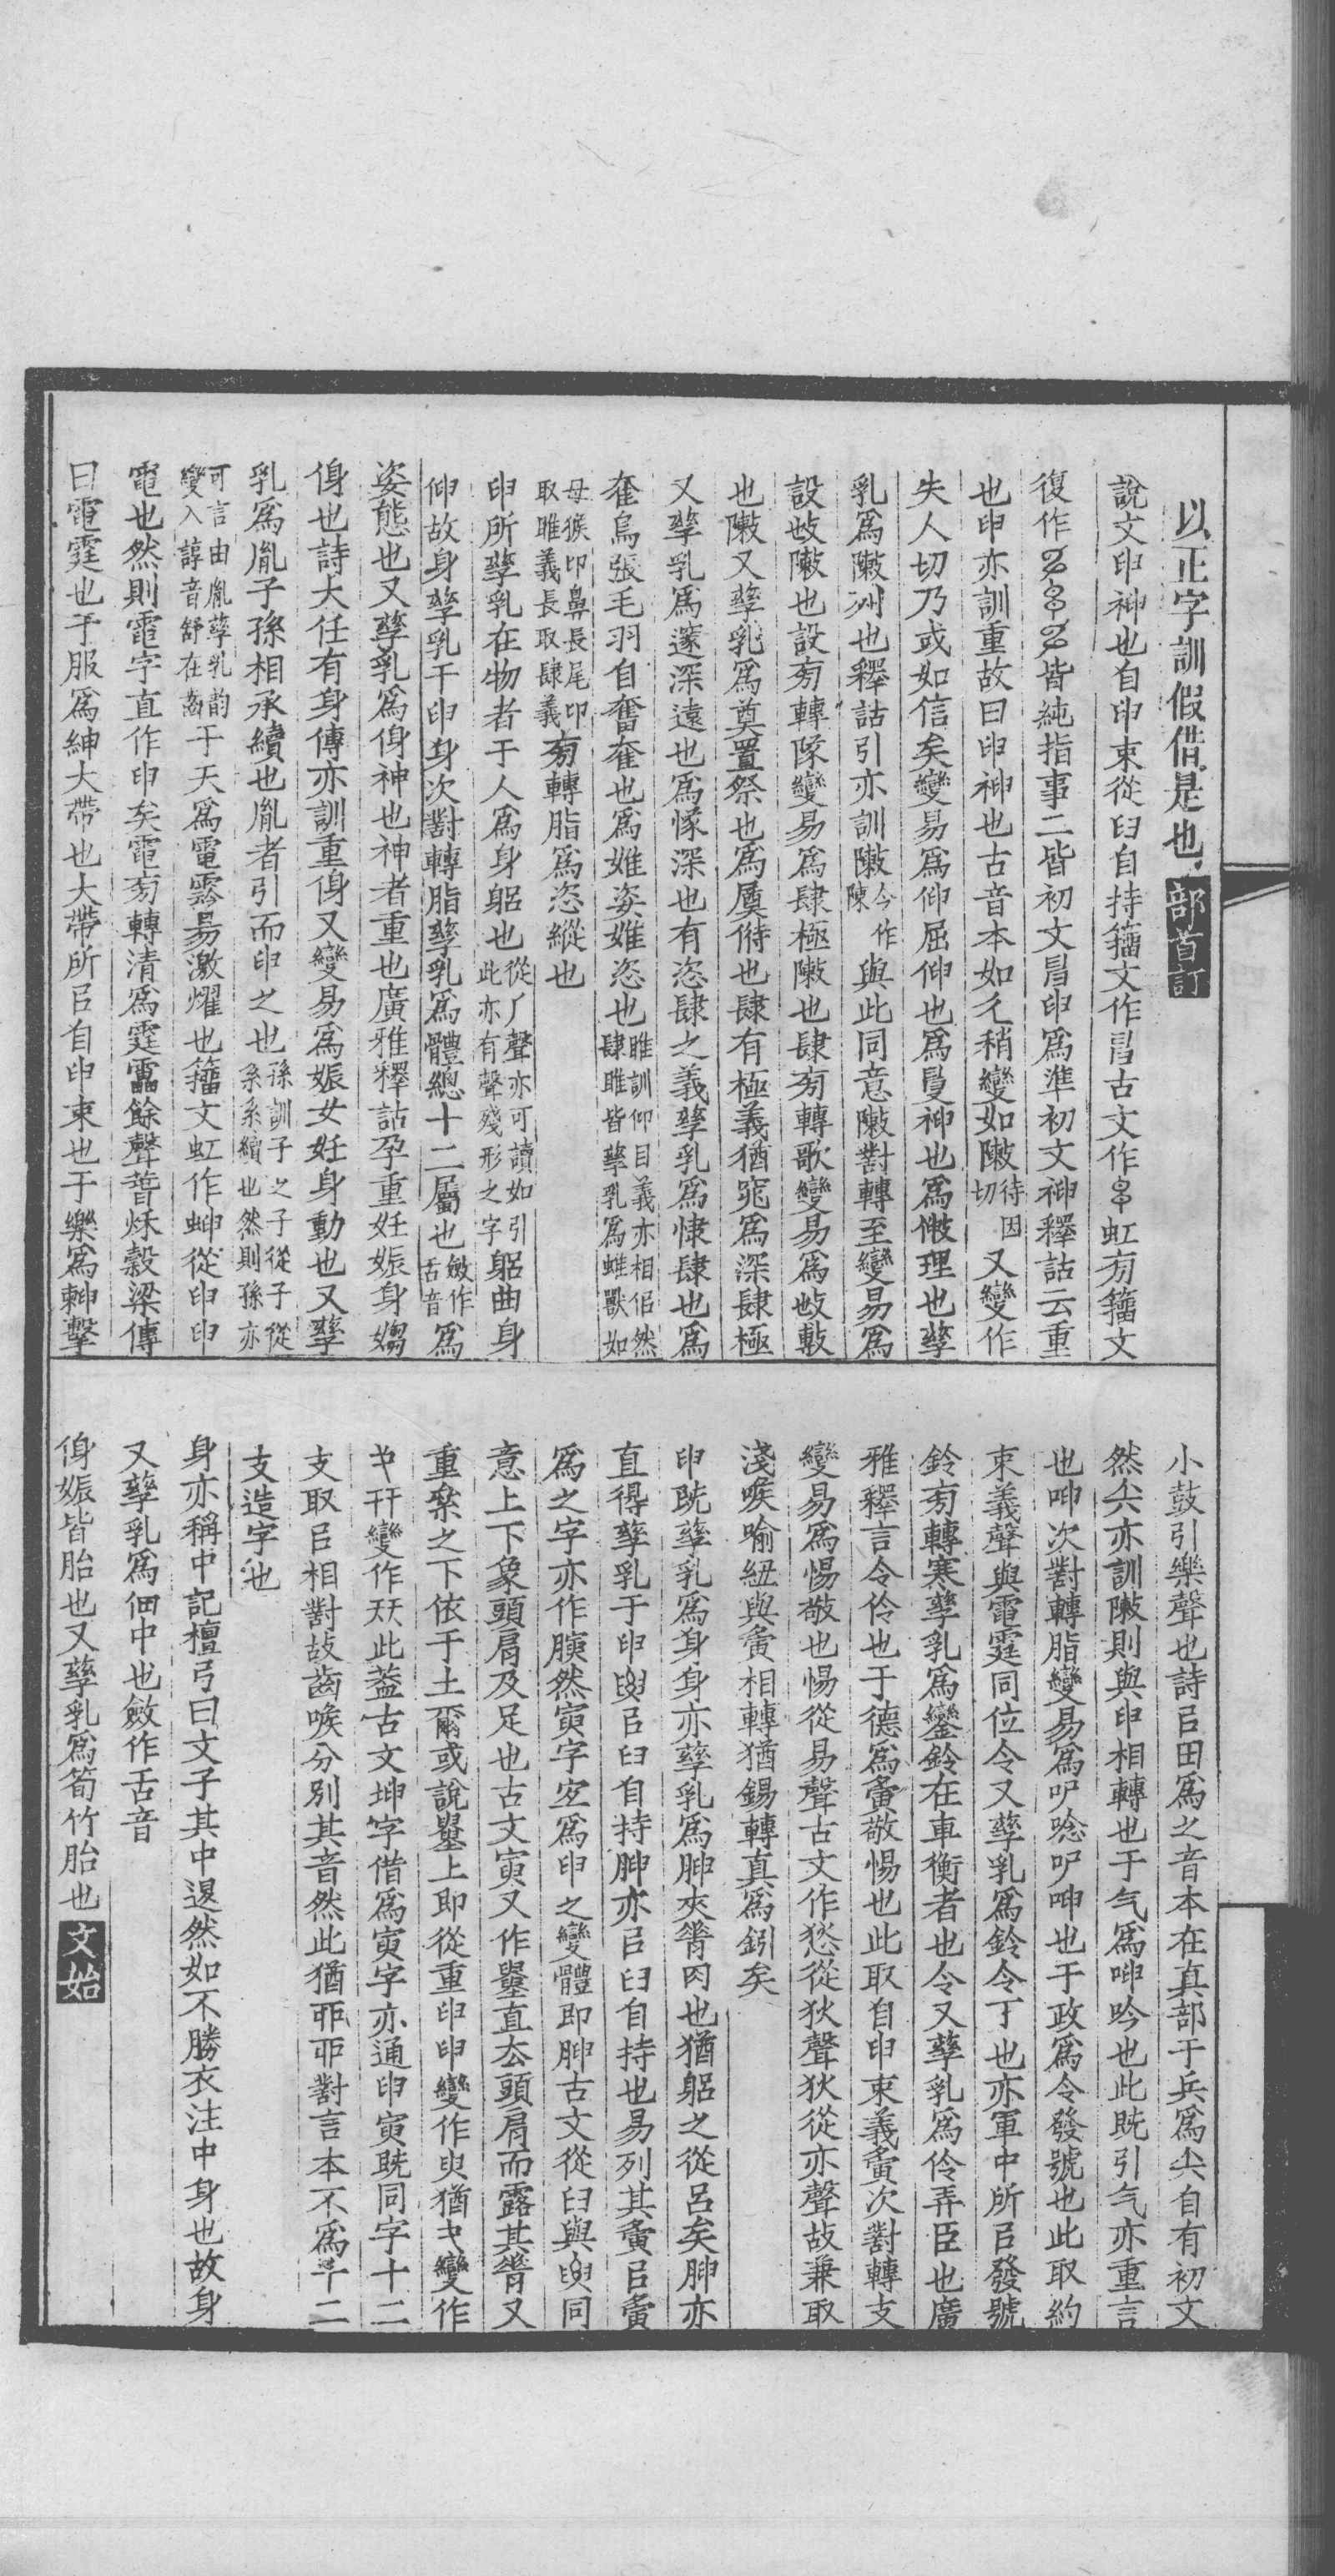 以正字訓假借是也部首訂
說文申神也自申束從臼自持籀文作𦥔古文作虹㫄籀文
復作皆純指事二皆初文㠯申爲準初文神釋詁云重
也申亦訓重故曰申神也古音本如㐱稍變如敶待因切又變作
失人切乃或如信矣變易爲伸屈伸也爲𢑚神也爲㑐理也孳
乳爲敶𠛱也釋詁引亦訓敶今作陳與此同意敶對轉至變易爲
設㪉敶也設㫄轉隊變易爲肆極敶也肆㫄轉歌變易爲㪉敷
也敶又孳乳爲奠置祭也爲㕑偫也肆有極義猶窕爲深肆極
又孳乳爲邃深遠也爲㥞深也有恣肆之義孳乳爲㣈肆也爲
奞鳥張毛羽自奮奞也爲婎姿婎恣也睢訓仰目義亦相侣然肆睢皆孳乳爲蜼獸如
母猴卬鼻長尾卬取睢義長取肆義㫄轉脂爲恣縱也
申所孳乳在物者于人爲身躳也從𠂆聲亦可讀如引此亦有聲殘形之字躳曲身
伸故身孳乳于申身次對轉脂孳乳爲體總十二屬也斂作舌音爲
姿態也又孳乳爲㑗神也神者重也廣雅釋詁孕重妊娠身媰
㑗也詩大任有身傳亦訓重㑗又變易爲娠女妊身動也又孳
乳爲胤子孫相承續也胤者引而申之也孫訓子之子從子從系系續也然則孫亦
可言由胤孳乳韵變入諄音舒在齒于天爲電霒昜激燿也籀文虹作𧈫從申申
電也然則雷字直作申矣電㫄轉清爲霆靁餘聲䔾秌榖梁傳
曰電霆也于服爲紳大帶也大帶所㠯自申束也于樂爲𣌾擊
小鼓引樂聲也詩㠯田爲之音本在真部于兵爲𡗗自有初文
然𡗗亦訓敶則與申相轉也于气爲呻吟也此旣引气亦重言
也呻次對轉脂變易爲吚唸吚呻也于政爲令發號也此取約
束義聲與電霆同位令又孳乳爲鈴令丁也亦軍中所㠯發號
鈴㫄轉寒孳乳爲鑾鈴在車衡者也令又孳乳爲伶弄臣也廣
雅釋言令伶也于德爲夤敬惕也此取自申束義夤次對轉支
變易爲惕敬也惕從易聲古文作悐從狄聲狄從亦聲故兼取
淺喉喻紐與夤相轉猶錫轉真爲鈏矣
申旣孳乳爲身身亦孳乳爲胂夾脊肉也猶躳之從呂矣胂亦
直得孳乳于申㠯臼自持胂亦㠯臼自持也易列其夤㠯夤
爲之字亦作𦞅然寅字定爲申之變體即胂古文從臼與同
意上下象頭肩及足也古文寅又作𡒝直厺頭肩而露其脊又
重絫之下依于土爾或說𡒝上即從重申申變作㬰猶變作
變作此蓋古文坤字借爲寅字亦通申寅旣同字十二
支取㠯相對故齒喉分別其音然此猶丣丣對言本不爲十二
支造字也
身亦稱中記檀弓曰文子其中退然如不勝衣注中身也故身
又孳乳爲佃中也斂作舌音
㑗娠皆胎也又孳乳爲筍竹胎也文始